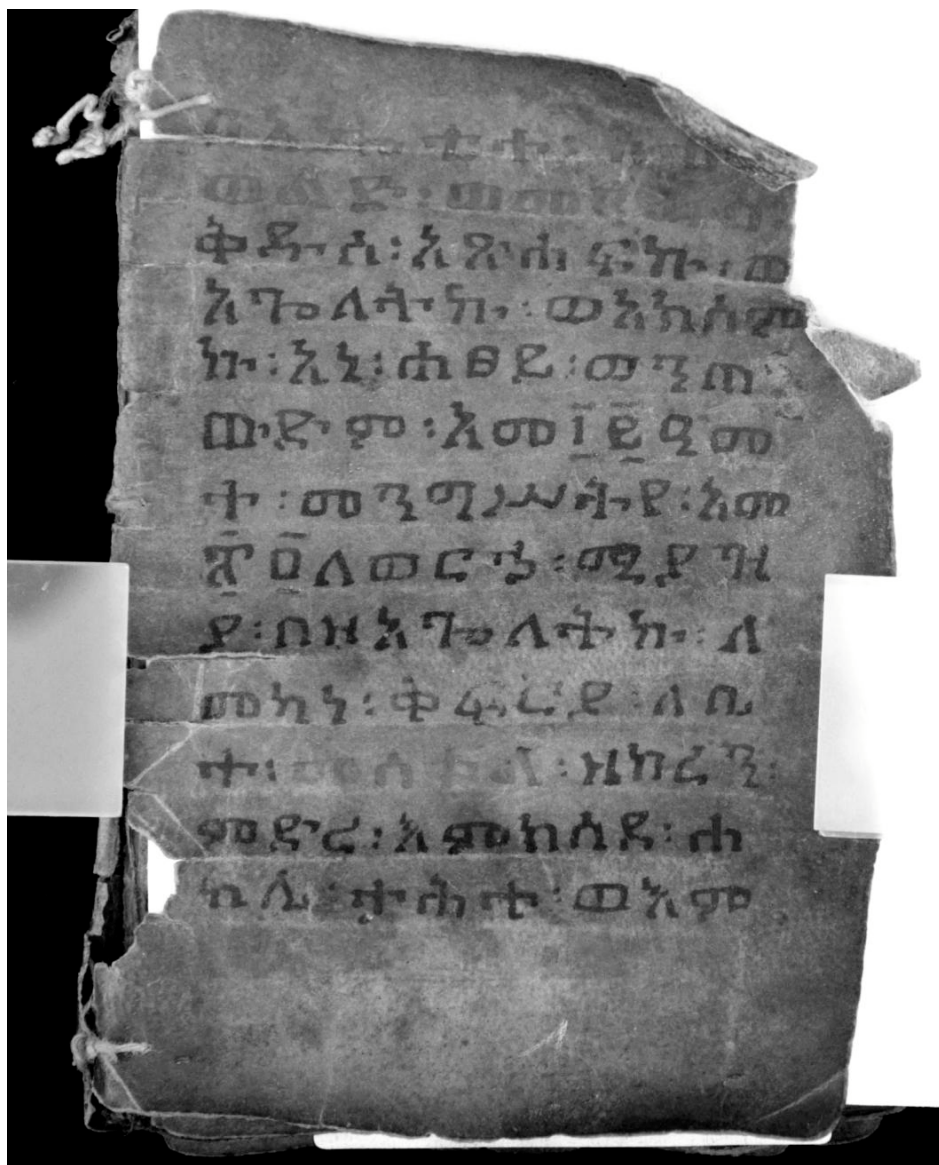 ወልድ፡ወመ
ቅዱስ፡አጽሐፍኩ፡ወ
አጐለትኩ፡ወአክሰም
ኩ፡አነ፡ሐፀይ፡መንጠ
ውድም፡አመ፲፪ዓመ
ተ፡መንግሥትየ፡አመ
፳፬ለወርኃ፡ሚያዝ
ያ፡በዝአጐለትኩ፡ለ
መካነ፡ቅፍርያ፡ለቤ
ተ፡መስቀል፡ዝከረን፡
ምድረ፡እምከሳደ፡ሐ
ኪሌ፡ታሕተ፡ወእም